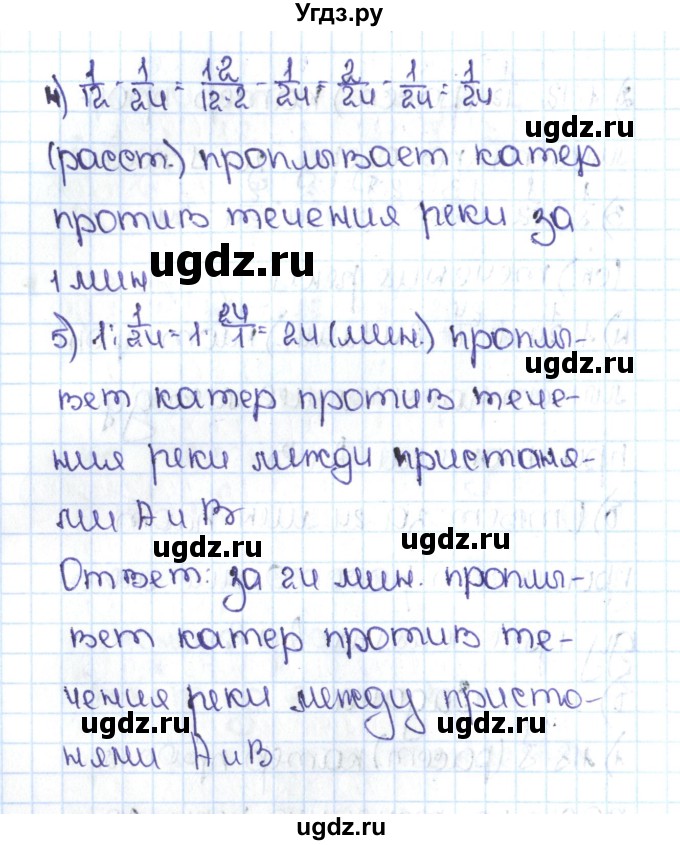 Угдз.ру
4) 1/12 - 1/24 = 1·2/12·2 - 1/24 = 2/24 - 1/24 = 1/24
ugdz.ru
(расст.) проплывает катер
против течения реки за
ugdz.ru
1 мин
5) 1 : 1/24 = 1 · 24/1 = 24 (мин.) проплы-
ugdz.ru
вет катер против тече-
ния реки между пристаня-
ми А и В
ugdz.ru
ugdz.ru
Ответ: за 24 мин. проплы-
вет катер против те-
ugdz.ru
чения реки между присто-
ugdz.ru
нями А и В
ugdz.ru
ugdz.ru